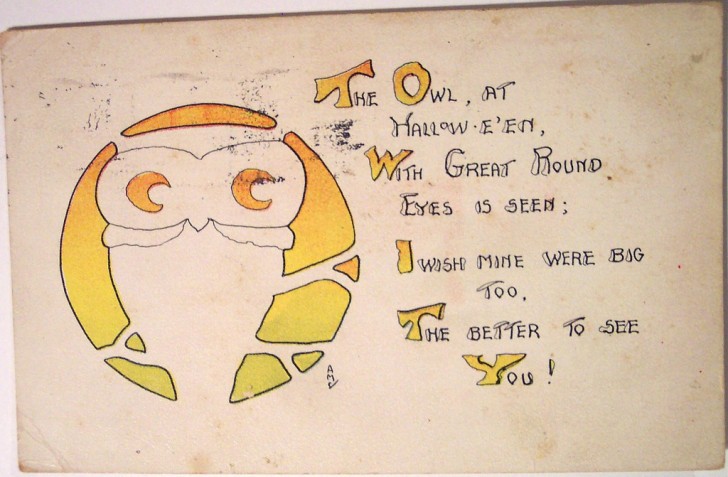 THE OWL, AT
HALLOW-E'EN,
WITH GREAT ROUND
EYES IS SEEN;
I WISH MINE WERE BIG
TOO,
THE BETTER TO SEE
YOU!